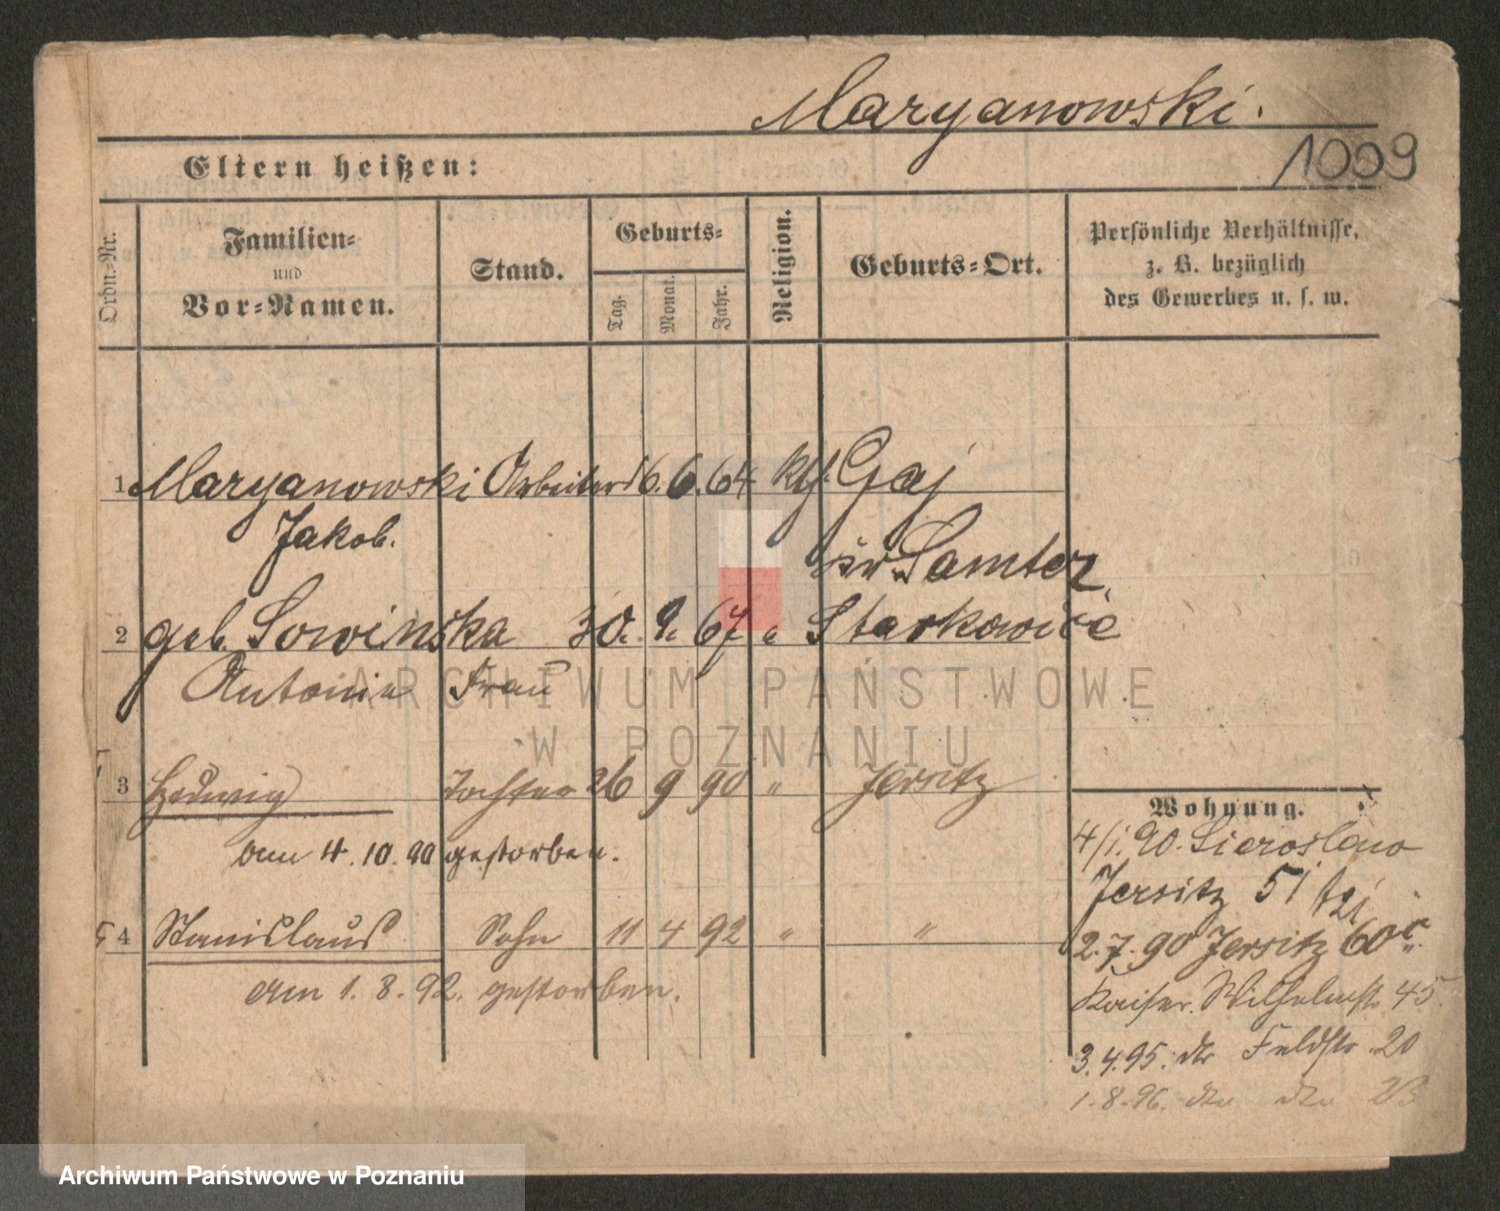 Maryanowski.
1009
Eltern heißen:
Ordn.-Nr.
Familien-
und
Vor-Namen.
Stand.
Geburts-
Tag.
Monat.
Jahr.
Religion.
Geburts-Ort.
Persönliche Verhältnisse,
z. B. bezüglich
des Gewerbes u. s. w.
1 Maryanowski Arbeiter 16. 6. 64 Gaj
Jakob.
Samter
2 geb. Sowinska 30. 9. 67 " Starkowice
Antonie Frau
3 Hedwig Tochter 26 9 90 " Jersitz
am 4. 10. 90 gestorben.
4 Stanislaus Sohn 11 4 92 " "
am 1. 8. 92. gestorben.
Wohnung.
4/1. 90. Sieroslawo
Jersitz 51
2. 7. 90 Jersitz 60c
Kaiser. Wilhelmstr 45.
3. 4. 95. dto Feldstr 20
1. 8. 96. dto dto 23
ARCHIWUM PAŃSTWOWE
W POZNANIU
Archiwum Państwowe w Poznaniu